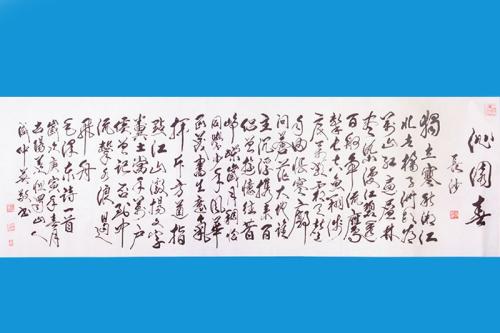 沁園春
長沙
獨立寒秋湘江
北去橘子洲頭看
萬山紅遍層林
盡染漫江碧透
百舸爭流鷹
擊長空魚翔淺
底萬類霜天競
自由悵寥廓
問蒼茫大地誰
主沉浮攜來百
侶曾遊憶往昔
崢嶸歲月稠恰
同學少年風華
正茂書生意氣
揮斥方遒指
點江山激揚文字
糞土當年萬戶
侯曾記否到中
流擊水浪遏
飛舟
毛澤東詩一首
歲次庚寅年
蜀山人